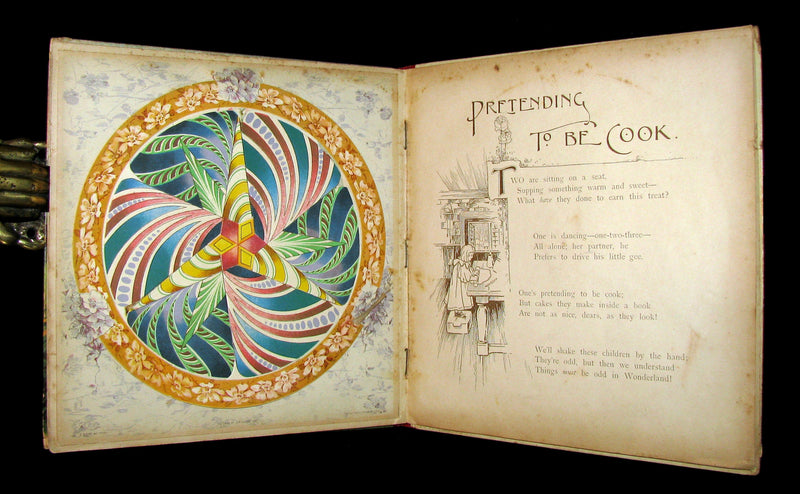 PRETENDING
TO BE COOK.
TWO are sitting on a seat,
Supping something warm and sweet—
What have they done to earn this treat?
One is dancing—one-two-three—
All alone; her partner, he
Prefers to drive his little gee.
One's pretending to be cook;
But cakes they make inside a book
Are not as nice, dears, as they look!
We'll shake these children by the hand;
They're odd, but then we understand
Things must be odd in Wonderland!